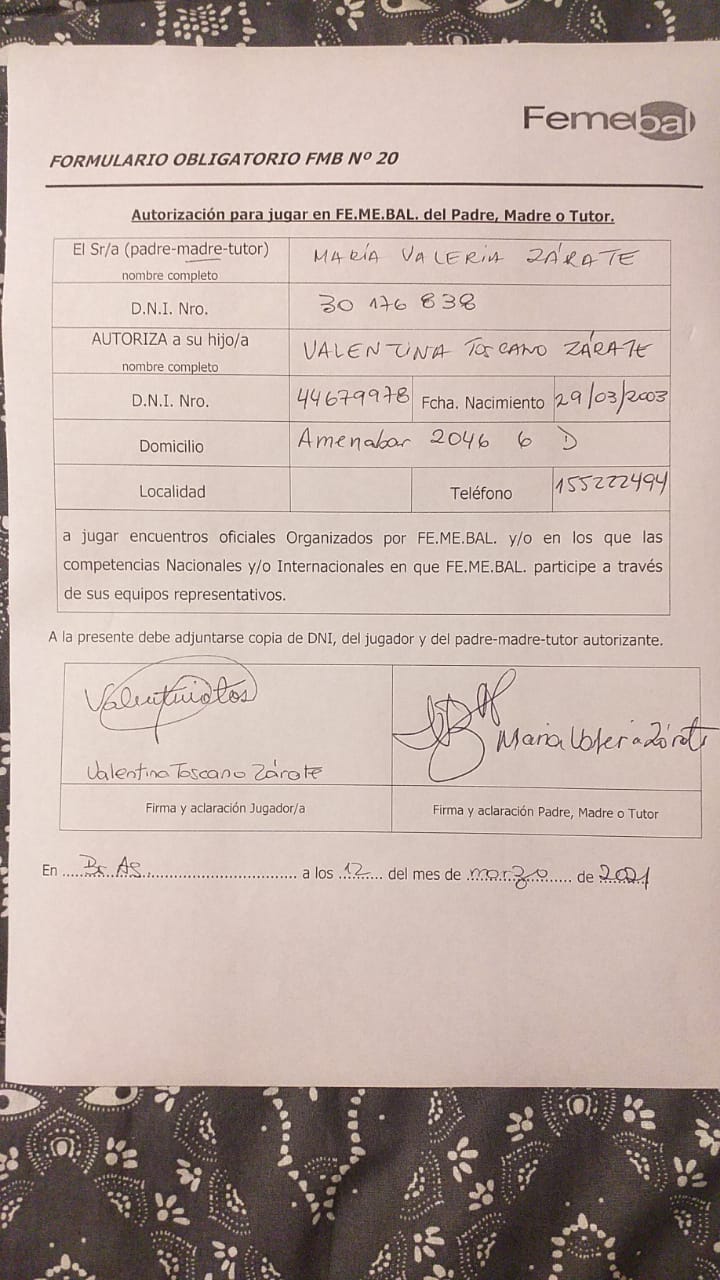 Femebal
FORMULARIO OBLIGATORIO FMB Nº 20
Autorización para jugar en FE.ME.BAL. del Padre, Madre o Tutor.
El Sr/a (padre-madre-tutor) MARÍA VALERIA ZÁRATE
nombre completo
D.N.I. Nro. 30 176 838
AUTORIZA a su hijo/a VALENTINA TOSCANO ZÁRATE
nombre completo
D.N.I. Nro. 44679978 Fcha. Nacimiento 29/03/2003
Domicilio Amenabar 2046 6 D
Localidad Teléfono 155222494
a jugar encuentros oficiales Organizados por FE.ME.BAL. y/o en los que las
competencias Nacionales y/o Internacionales en que FE.ME.BAL. participe a través
de sus equipos representativos.
A la presente debe adjuntarse copia de DNI, del jugador y del padre-madre-tutor autorizante.
Valentina Toscano Zárate Maria Valeria Zárate
Firma y aclaración Jugador/a Firma y aclaración Padre, Madre o Tutor
En Bs As. a los 12 del mes de marzo de 2021